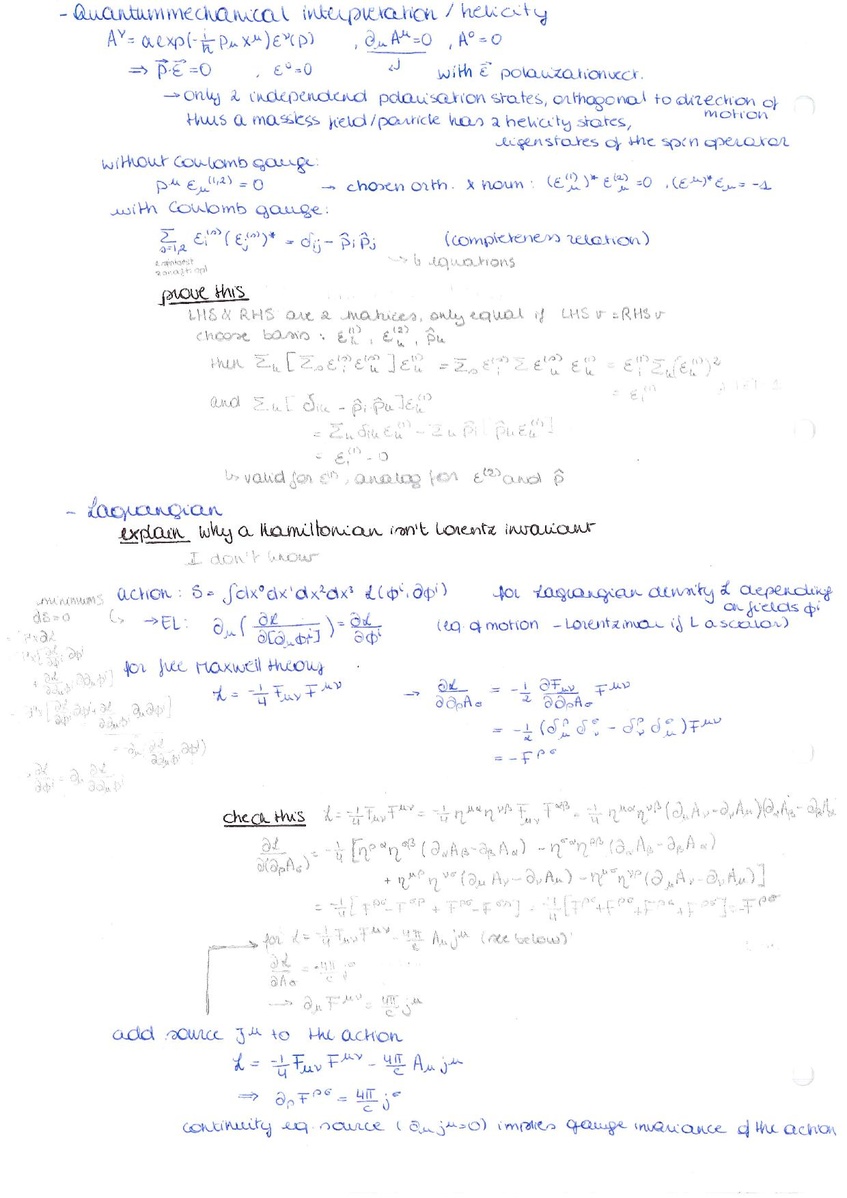 - Quantummechanical interpretation / helicity
A^ν = a exp(-i/ħ p_μ x^μ) ε^ν(p) , ∂_μ A^μ = 0 , A^0 = 0
⇒ p⃗·ε⃗ = 0 , ε^0 = 0 with ε⃗ polarizationvect.
→ only 2 independend polarisation states, orthogonal to direction of motion
thus a massless field/particle has 2 helicity states,
eigenstates of the spin operator
without Coulomb gauge:
p^μ ε_μ^(1,2) = 0 → chosen orth. & norm: (ε_μ^(1))* ε_μ^(2) = 0 , (ε^μ)* ε_μ = -1
with Coulomb gauge:
Σ_{s=1,2} ε_i^(s) (ε_j^(s))* = δ_ij - p̂_i p̂_j (completeness relation)
↳ 6 equations
prove this
LHS & RHS are 2 matrices, only equal if LHS v = RHS v
choose basis : ε_k^(1), ε_k^(2), p̂_k
then Σ_k [Σ_s ε_i^(s) ε_k^(s)] ε_k^(1) = Σ_s ε_i^(s) Σ ε_k^(s) ε_k^(1) = ε_i^(1) Σ_k (ε_k^(1))^2
= ε_i^(1)
and Σ_k [δ_ik - p̂_i p̂_k] ε_k^(1)
= Σ_k δ_ik ε_k^(1) - Σ_k p̂_i [p̂_k ε_k^(1)]
= ε_i^(1) - 0
↳ valid for ε^(1), analog for ε^(2) and p̂
- Lagrangian
explain why a Hamiltonian isn't Lorentz invariant
I don't know
action : S = ∫dx^0 dx^1 dx^2 dx^3 ℒ(ϕ^i, ∂ϕ^i) for Lagrangian density ℒ depending on fields ϕ^i
minimums
dS=0
↳ → EL: ∂_μ (∂ℒ/∂[∂_μ ϕ^i]) = ∂ℒ/∂ϕ^i (eq of motion - Lorentzinvar if L a scalar)
for free Maxwell theory
ℒ = -1/4 F_μν F^μν → ∂ℒ/∂∂_ρ A_σ = -1/2 ∂F_μν/∂∂_ρ A_σ F^μν
= -1/2 (δ_μ^ρ δ_ν^σ - δ_ν^ρ δ_μ^σ) F^μν
= -F^ρσ
∂ℒ/∂ϕ^i = ∂_μ ∂ℒ/∂∂_μ ϕ^i
check this ℒ = -1/4 F_μν F^μν = -1/4 η^μα η^νβ F_μν F_αβ = -1/4 η^μα η^νβ (∂_μ A_ν - ∂_ν A_μ)(∂_α A_β - ∂_β A_α)
∂ℒ/∂(∂_ρ A_σ) = -1/4 [η^ρα η^σβ (∂_α A_β - ∂_β A_α) - η^σα η^ρβ (∂_α A_β - ∂_β A_α)
+ η^μρ η^νσ (∂_μ A_ν - ∂_ν A_μ) - η^μσ η^νρ (∂_μ A_ν - ∂_ν A_μ)]
= -1/4 [F^ρσ - F^σρ + F^ρσ - F^σρ] = -1/4 [F^ρσ + F^ρσ + F^ρσ + F^ρσ] = -F^ρσ
for ℒ = -1/4 F_μν F^μν - 4π/c A_μ j^μ (see below)
∂ℒ/∂A_σ = -4π/c j^σ
→ ∂_μ F^μν = 4π/c j^μ
add source J^μ to the action
ℒ = -1/4 F_μν F^μν - 4π/c A_μ j^μ
⇒ ∂_ρ F^ρσ = 4π/c j^σ
continuity eq. source (∂_μ j^μ = 0) implies gauge invariance of the action